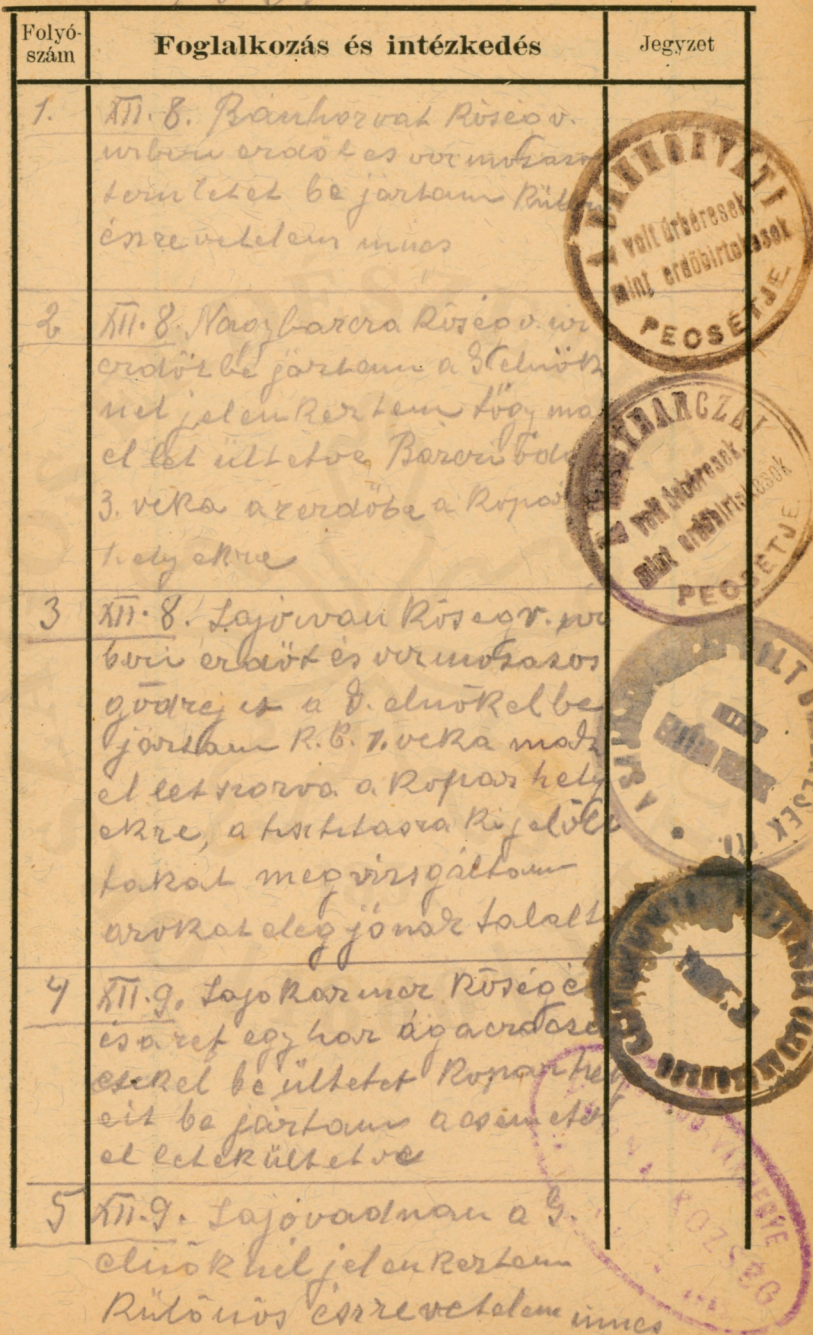 Folyó-
szám
Foglalkozás és intézkedés
Jegyzet
1. XII. 8. Bánhorvát Község v.
urberi erdőt es vermosasos
területet be jártam Külön
észrevetelem nincs
A BÁNHORVÁTI
volt úrbéresek,
mint erdőbirtokosok
PECSÉTJE
2 XII. 8. Nagybarca Község v. ur
erdőt bé jártam a elnök
nél jelenkeztem tőgy ma
el let ültetve Barcai
3. véka azerdőbe a Kopar
helyekre
A NAGYBARCZAI
volt úrbéresek,
mint erdőbirtokosok
PECSÉTJE
3 XII. 8. Sajóivan Község v. ur
beri erdőt és vermosasos
gödrejit a elnökel be
jártam K.B. 1. veka mak
el let szorva a Kopar hely
ekre, a tisztitasra Kijelölt
takat megvizsgáltam
azokat elég jónak talalt
VOLT ÚRBÉRESEK
4 XII. 9. Sajo Kazincz Község
és a ref egyhaz ága erdose
csekel be ültetet Kopar hely
eit be jártam a csemetek
el letek ültetve
5 XII. 9. Sajóvadnan a
elnöknél jelenkeztem
Külön­ös észrevetelem nincs
KÖZSÉG